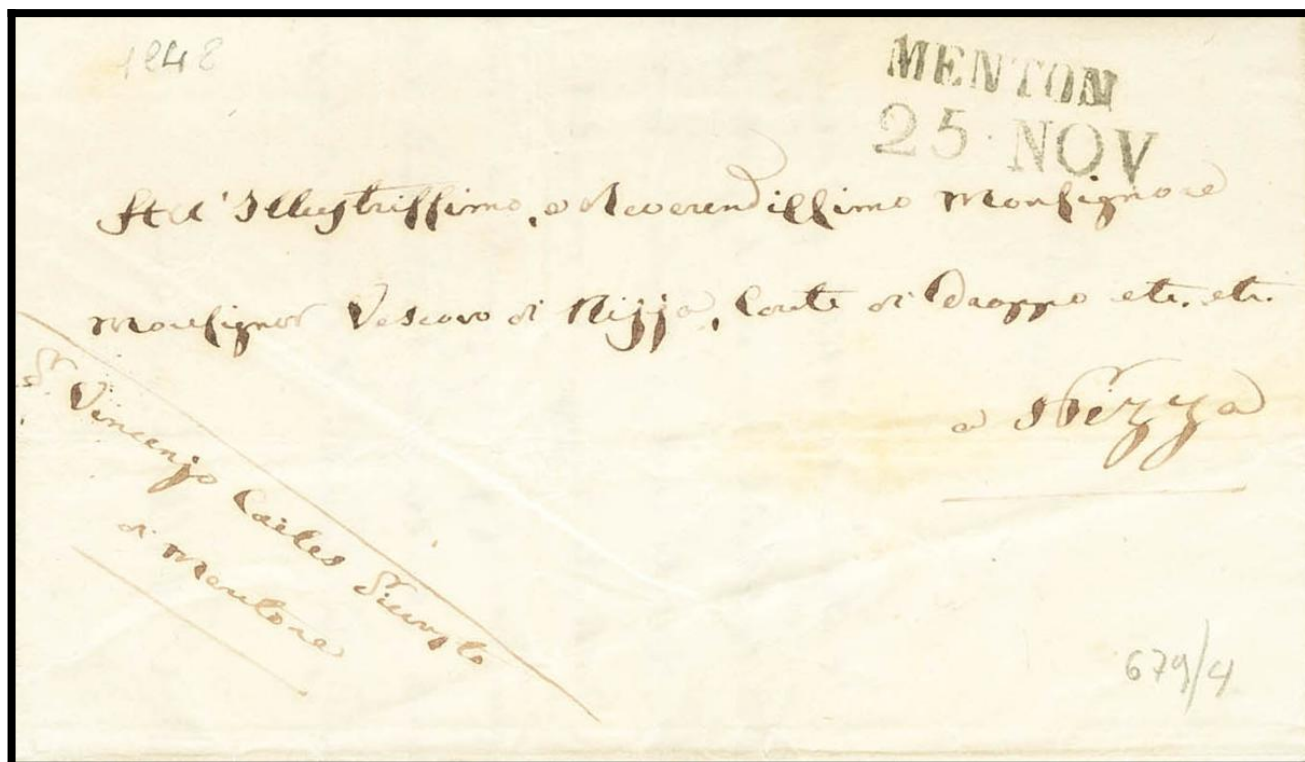 1848
MENTON
25 NOV
All' Illustrissimo, e Reverendissimo Monsignore
Monsignor Vescovo di Nizza, Conte di Drappo etc. etc.
a Nizza
Vincenzo
di Mentone
679/4